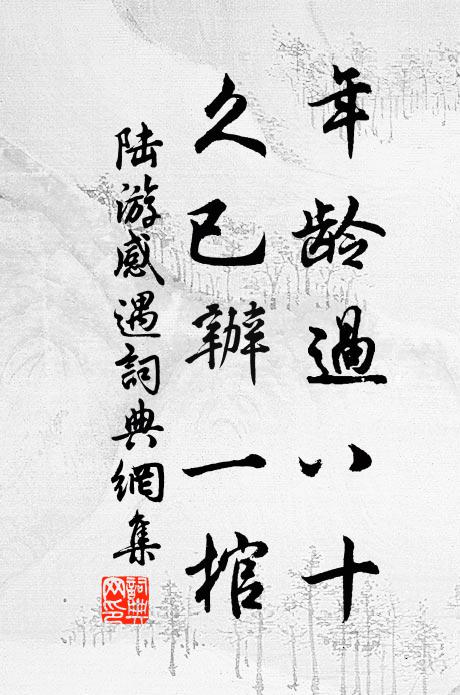 年龄過八十
久已辦一棺
陆游感遇詞典網集
詞典網印